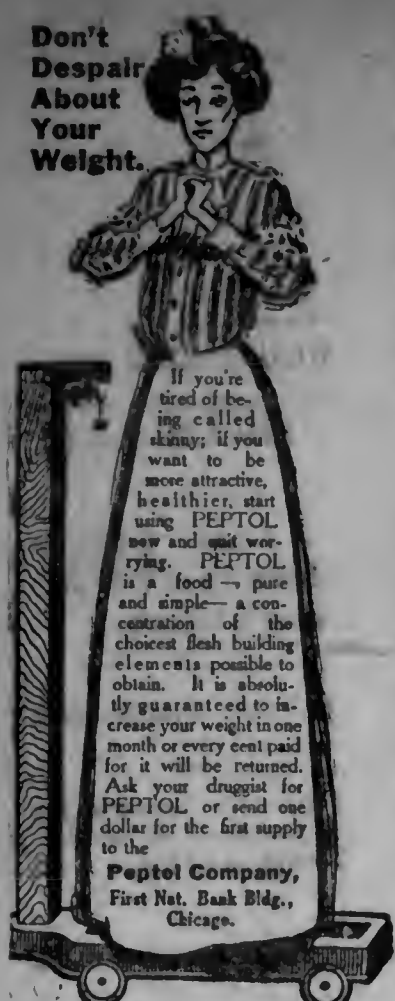 Don't
Despair
About
Your
Weight.
If you're
tired of be-
ing called
skinny; if you
want to be
more attractive,
healthier, start
using PEPTOL
now and quit wor-
rying. PEPTOL
is a food — pure
and simple— a con-
centration of the
choicest flesh building
elements possible to
obtain. It is absolu-
tly guaranteed to in-
crease your weight in one
month or every cent paid
for it will be returned.
Ask your druggist for
PEPTOL or send one
dollar for the first supply
to the
Peptol Company,
First Nat. Bank Bldg.,
Chicago.